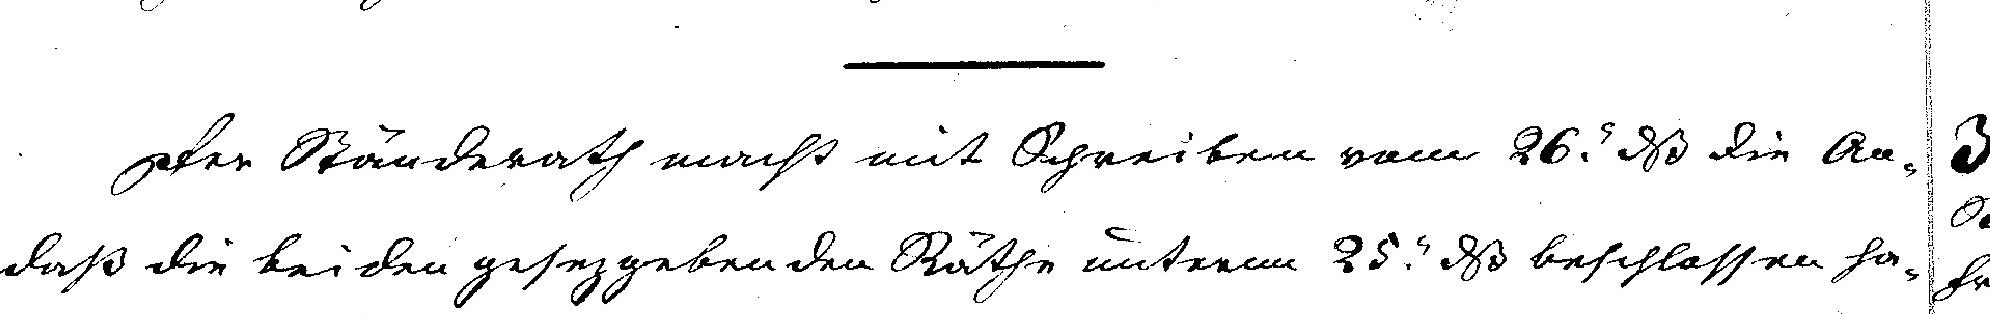 Der Ständerath macht mit Schreiben vom 26.s dß die An-
daß die beiden gesezgebenden Räthe unterm 25.s dß beschlossen ha-